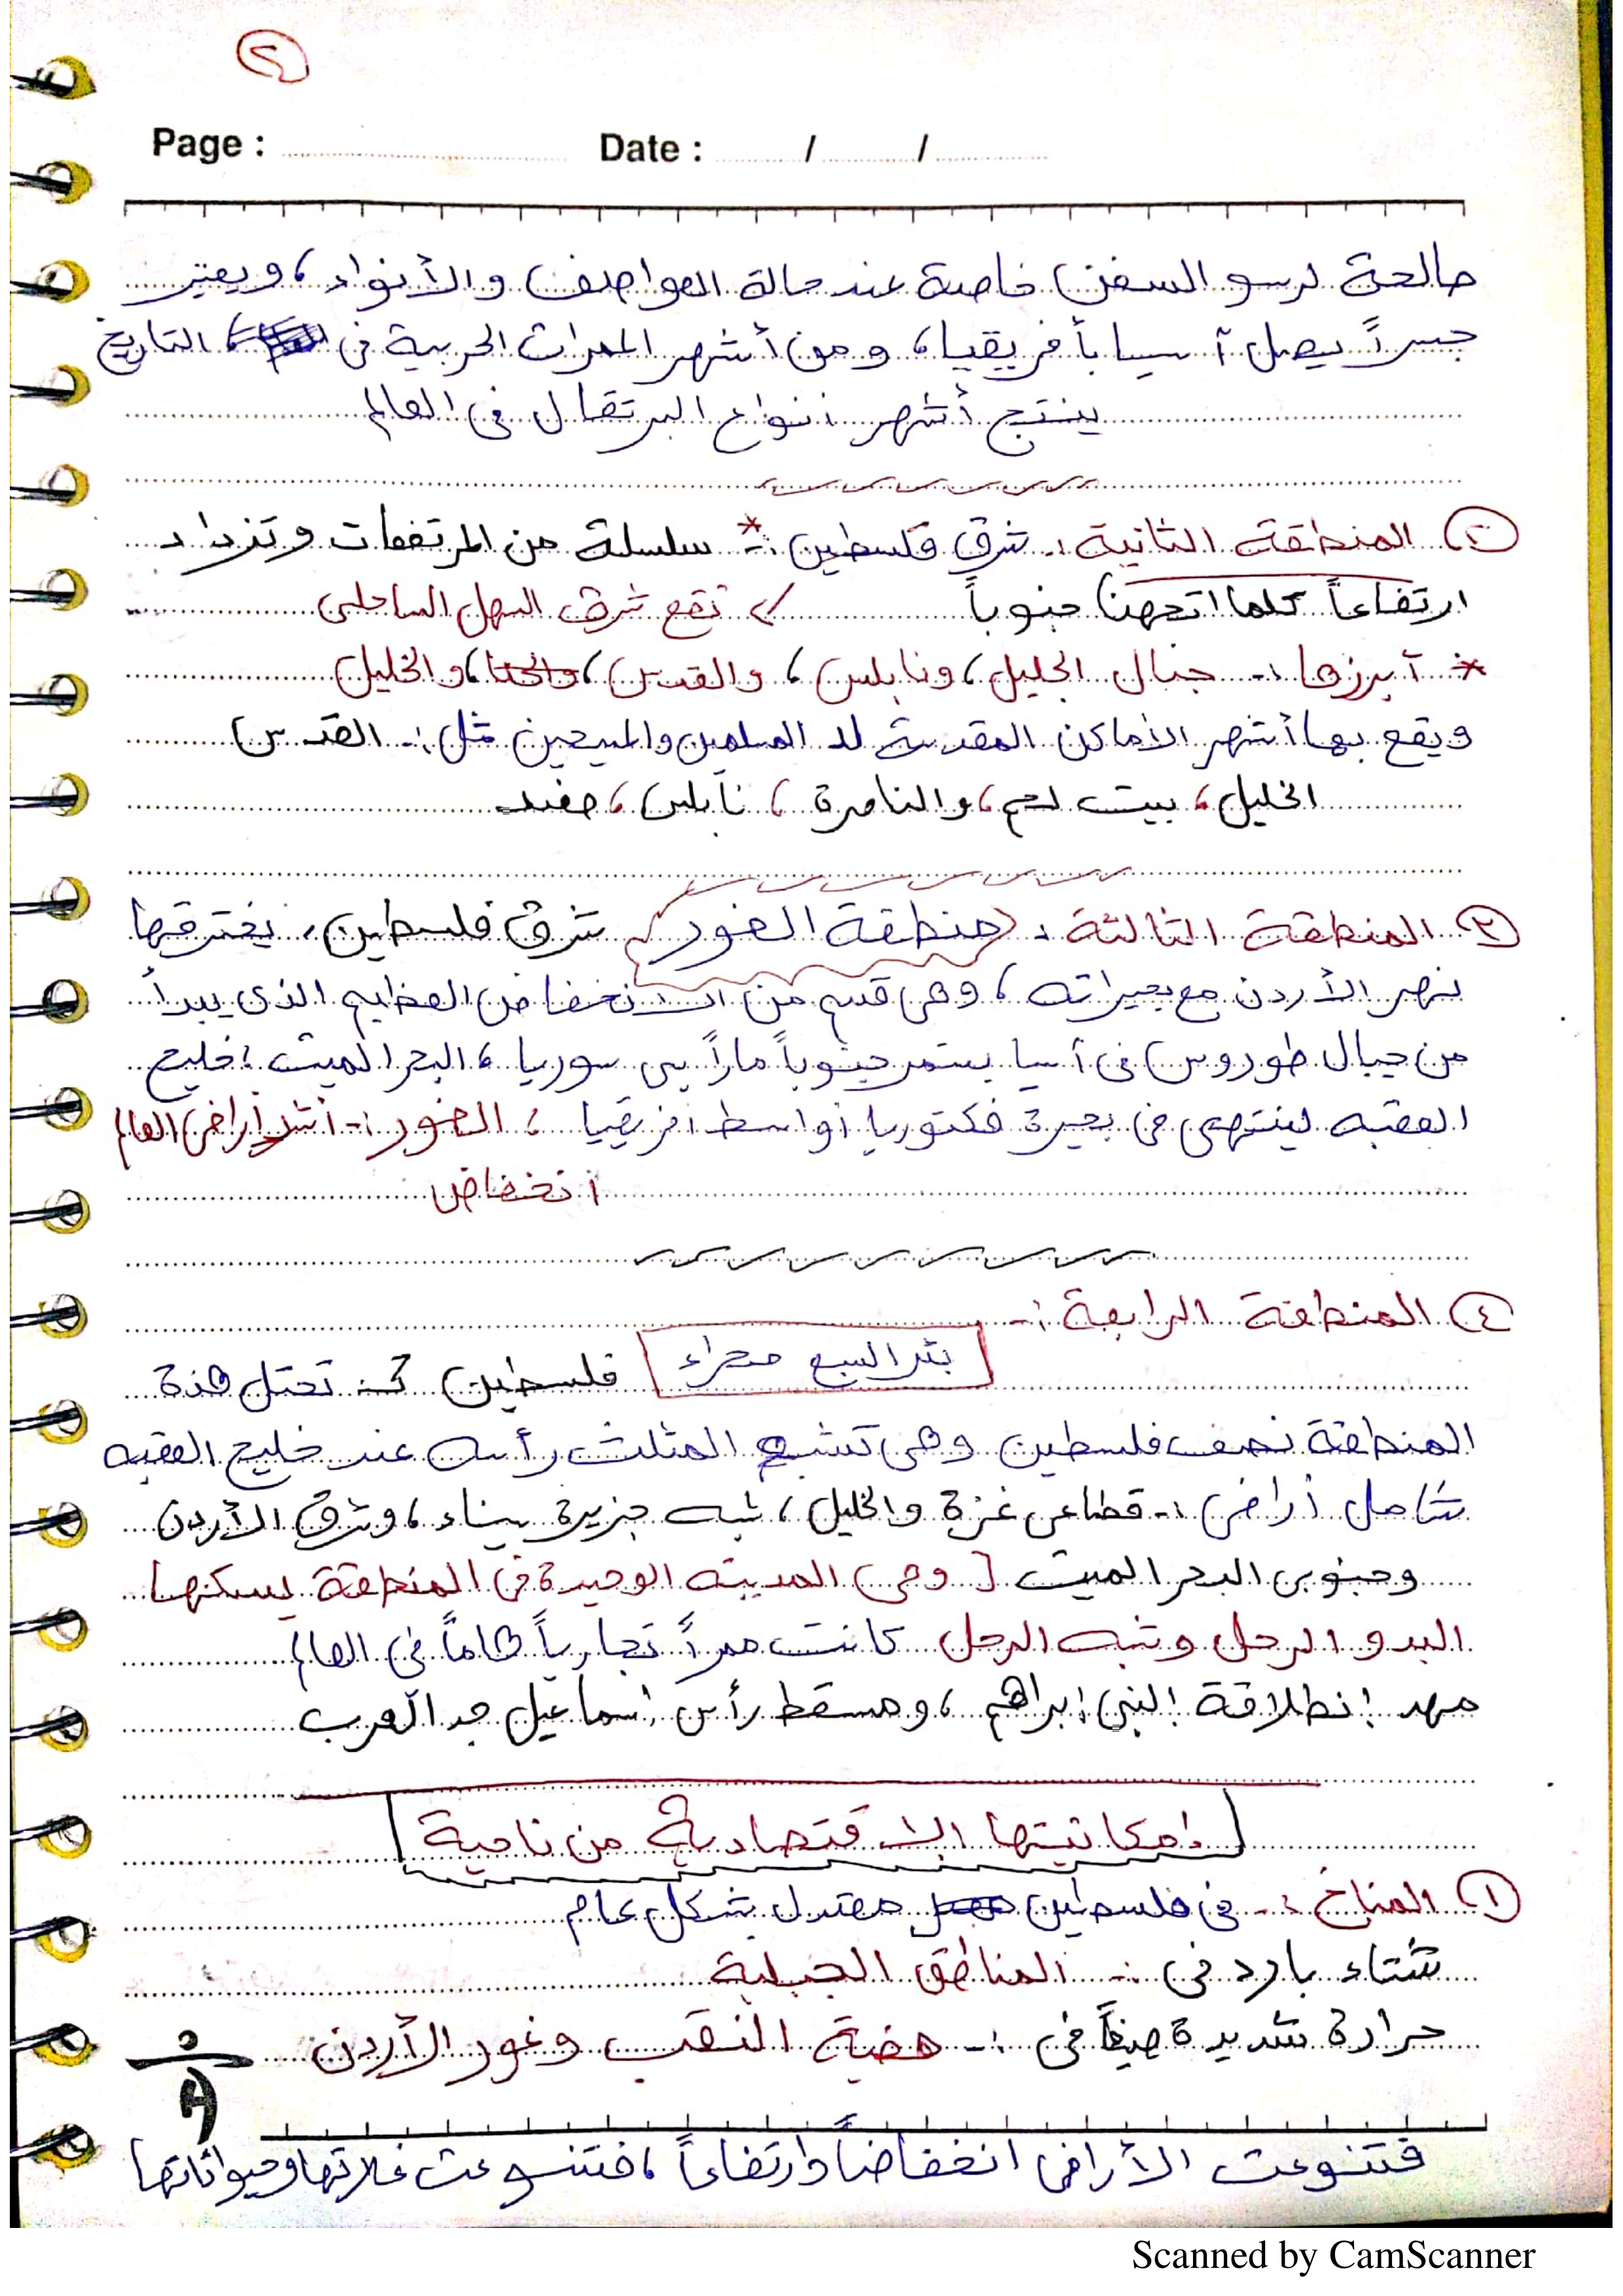 ٢
Page : Date : / /
صالحة لرسو السفن خاصة عند حالة العواصف والأنواء، ويعتبر
جسراً يصل آسيا بأفريقيا، ومن أشهر الممرات الحربية في التاريخ
ينتج أشهر أنواع البرتقال في العالم
٢ المنطقة الثانية :. شرق فلسطين :- * سلسلة من المرتفعات وتزداد
ارتفاعاً كلما اتجهنا جنوباً تقع شرق السهل الساحلي
* أبرزها :- جبال الجليل، ونابلس، والقدس، والخليل
ويقع بها أشهر الأماكن المقدسة لد المسلمين والمسيحين مثل :- القدس
الخليل، بيت لحم، والناصرة، نابلس، صفد
٣ المنطقة الثالثة : (منطقة الغور) شرق فلسطين، يخترقها
نهر الأردن مع بحيراته، وهي قسم من الانخفاض العظيم الذي يبدأ
من جبال طوروس في آسيا يستمر جنوباً ماراً بـ سوريا، البحر الميت، خليج
العقبه لينتهي في بحيرة فكتوريا أواسط افريقيا، الغور :- أشد أراضي العالم
انخفاض
٤ المنطقة الرابعة :-
بئر السبع صحراء فلسطين :- تحتل هذة
المنطقة نصف فلسطين وهي تشبه المثلث رأسه عند خليج العقبه
تشامل أراضي :- قطاعي غزة والخليل، شبه جزيرة سيناء، وشرق الأردن
وجنوبي البحر الميت [ وهي المدينه الوحيدة في المنطقة يسكنها
البدو الرحل وشبه الرحل كانت ممراً تجارياً هاماً في العالم
مهد إنطلاقة النبي إبراهم، ومسقط رأس إسماعيل جد العرب
إمكانيتها الاقتصادية من ناحية
١ المناخ :- في فلسطين معتدل بشكل عام
شتاء بارد في :- المناطق الجبلية
حرارة شديدة صيفاً في :- هضبة النقب وغور الأردن
فتنوعت الأراضي انخفاضاً وارتفاعاً، فتنوعت غلاتها وحيواناتها
Scanned by CamScanner